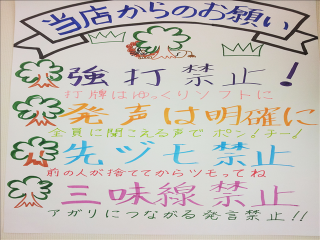 当店からのお願い
強打禁止！
打牌はゆっくりソフトに
発声は明確に
全員に聞こえる声でポン！チー！
先ヅモ禁止
前の人が捨ててからツモってね
三味線禁止
アガリにつながる発言禁止！！